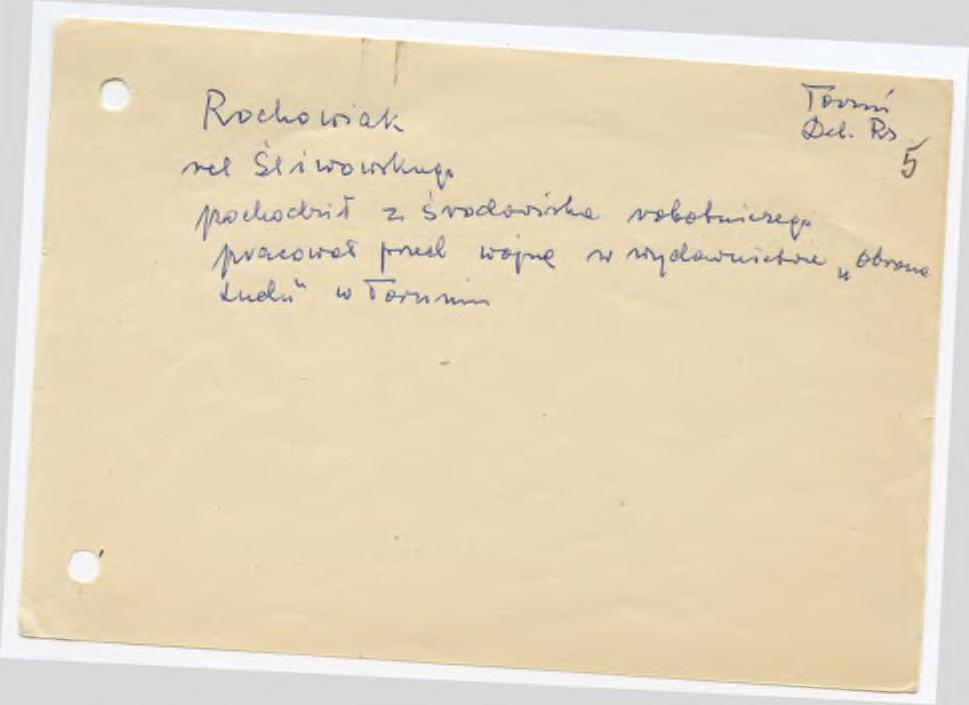 Toruń
Del. Rz
5
Rochowiak
rel Śliwowskiego
pochodził z środowiska robotniczego
pracował przed wojną w wydawnictwie „Obrona
Ludu" w Toruniu